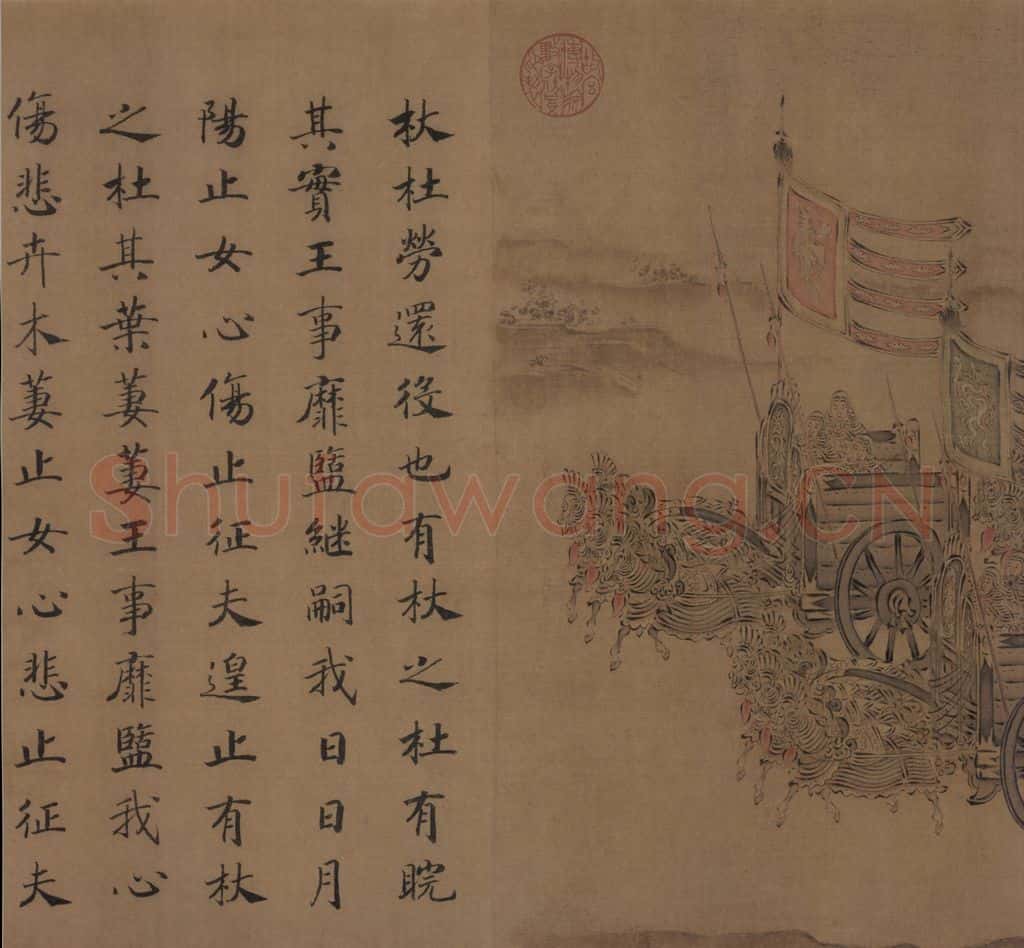 杕杜勞還役也有杕之杜有睆
其實王事靡盬継嗣我日日月
陽止女心傷止征夫遑止有杕
之杜其葉萋萋王事靡盬我心
傷悲卉木萋止女心悲止征夫
Shufawang.CN